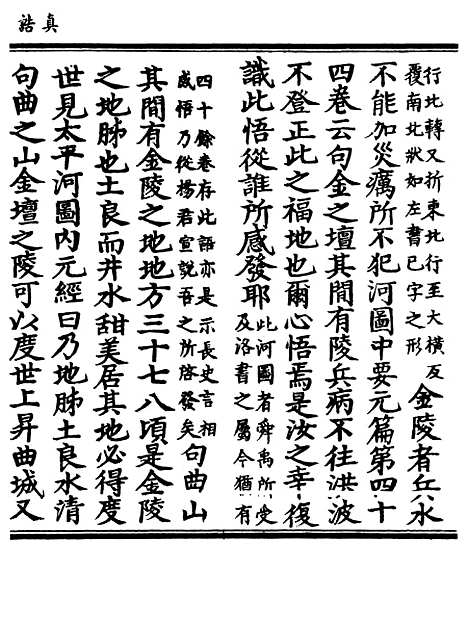 真誥
行北轉又折東北行至大橫反
覆南北狀如左書已字之形
金陵者兵水
不能加災癘所不犯河圖中要元篇第四十
四卷云句金之壇其間有陵兵病不往洪波
不登正此之福地也爾心悟焉是汝之幸復
識此悟從誰所感發耶
此河圖者舜禹所受
及洛書之屬今猶有
四十餘卷存此語亦是示長史言相
感悟乃從楊君宣說吾之所啓發矣
句曲山
其間有金陵之地地方三十七八頃是金陵
之地肺也土良而井水甜美居其地必得度
世見太平河圖內元經曰乃地肺土良水清
句曲之山金壇之陵可以度世上昇曲城又